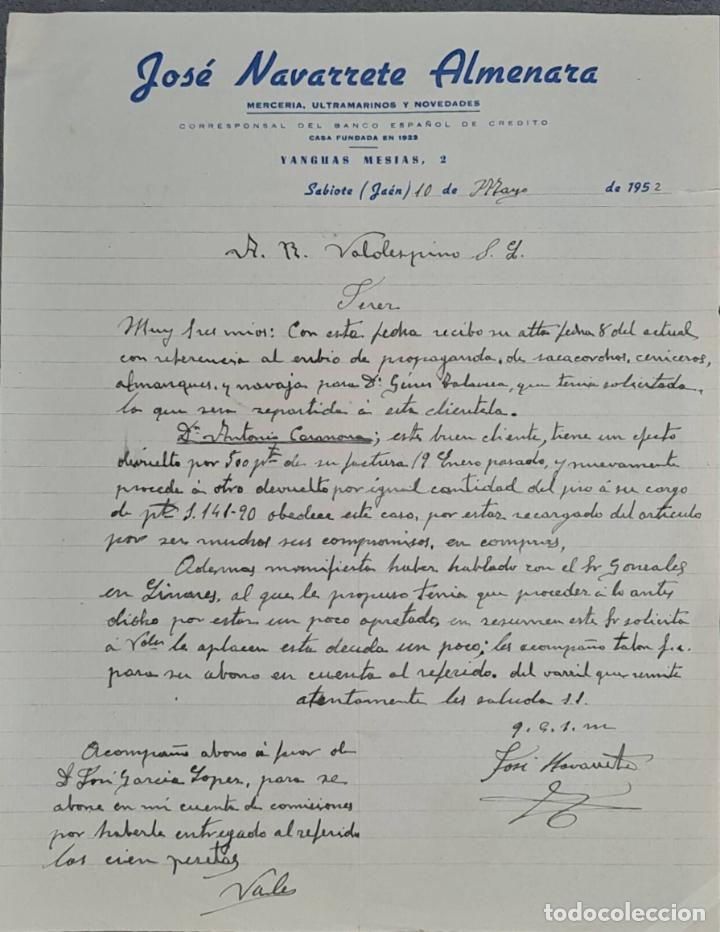 José Navarrete Almenara
MERCERIA, ULTRAMARINOS Y NOVEDADES
CORRESPONSAL DEL BANCO ESPAÑOL DE CREDITO
CASA FUNDADA EN 1923
YANGUAS MESIAS, 2
Sabiote (Jaén) 10 de Mayo de 1952
A. R. Valdespino S. L.
Jerez
Muy Sres mios: Con esta fecha recibo su atta fecha 8 del actual
con referencia al enbio de propaganda, de sacacorchos, ceniceros,
almanaques, y navaja para Dn Talavera, que tenia solicitada
lo que sera repartida á esta clientela.
Dn Antonio Casanova; este buen cliente, tiene un efecto
devuelto por 500 pts de su factura 19 Enero pasado, y nuevamente
procede á otro devuelto por igual cantidad del jiro á su cargo
de pts 1.141-90 obedece este caso, por estar recargado del articulo
por ser muchos sus compromisos, en compras,
Ademas manifiesta haber hablado con el Sr Gonzales
en Linares, al que le propuso tenia que proceder á lo antes
dicho por estar un poco apretado, en resumen este Sr solicita
á Vdes le aplacen esta deuda un poco; les acompaño talon f.c.
para su abono en cuenta al referido. del varril que remite
atentamente les saluda s.s.
q. e. s. m
José Navarrete
Acompaño abono á favor de
D José Garcia Lopez, para se
abone en mi cuenta de comisiones
por haberle entregado al referido
las cien pesetas
Vale
todocoleccion
todocoleccion.net